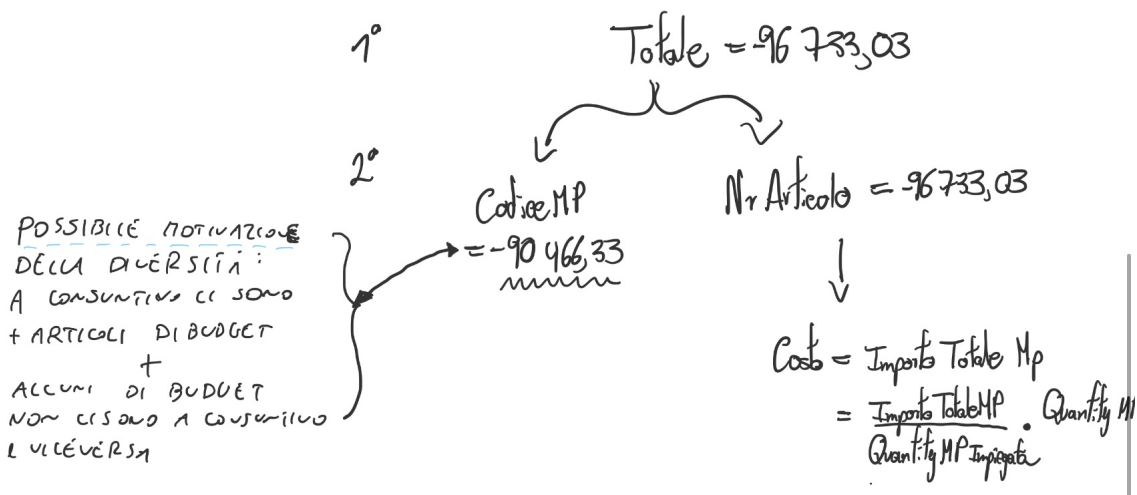 1°
Totale = -96 733,03
2°
Codice MP
= -90 466,33
Nr Articolo = -96733,03
POSSIBILE MOTIVAZIONE
DELLA DIVERSITÀ :
A CONSUNTIVO CI SONO
+ ARTICOLI DI BUDGET
+
ALCUNI DI BUDGET
NON CI SONO A CONSUNTIVO
E VICEVERSA
Costo = Importo Totale Mp
= Importo Totale MP / Quantity MP Impiegata . Quantity MP